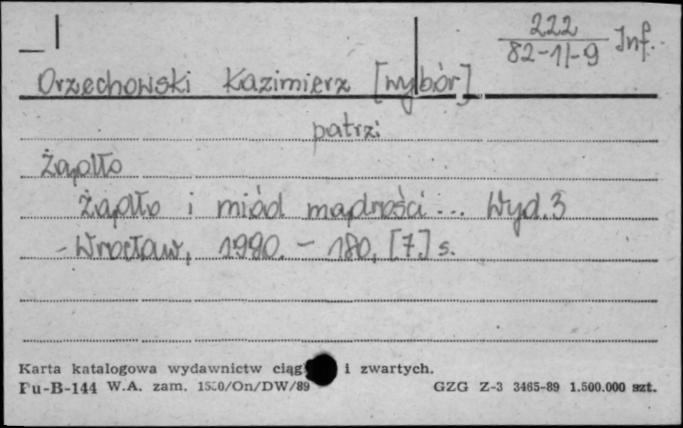 222
82-11-9 Inf.
Orzechowski Kazimierz [wybór]
patrz:
Żądło
Żądło i miód mądrości... Wyd. 3
- Wrocław, 1990. - 180, [7] s.
Karta katalogowa wydawnictw ciąg i zwartych.
Pu-B-144 W.A. zam. /On/DW/89 GZG Z-3 3465-89 1.500.000 szt.